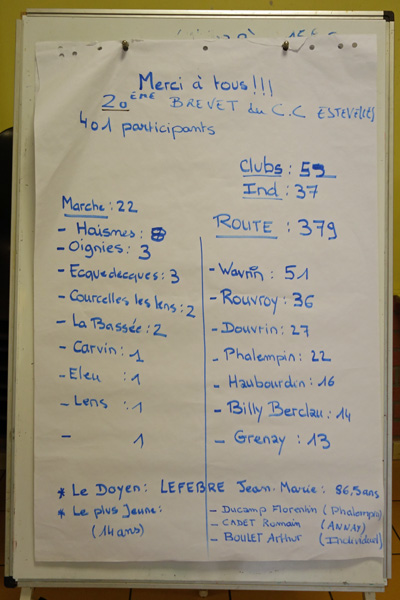 Merci à tous!!!
20ème BREVET du C.C ESTEVELLES
401 participants
Clubs : 59
Ind : 37
Marche : 22
- Haisnes : 8
- Oignies : 3
- Ecquedecques : 3
- Courcelles les lens : 2
- La Bassée : 2
- Carvin : 1
- Eleu : 1
- Lens : 1
- 1
ROUTE : 379
- Wavrin : 51
- Rouvroy : 36
- Douvrin : 27
- Phalempin : 22
- Haubourdin : 16
- Billy Berclau : 14
- Grenay : 13
* Le Doyen : LEFEBRE Jean-Marie : 86,5 ans
* Le plus Jeune :
(14 ans)
- Ducamp Florentin (Phalempin)
- CADET Romain (ANNAY)
- BOULET Arthur (Individuel)